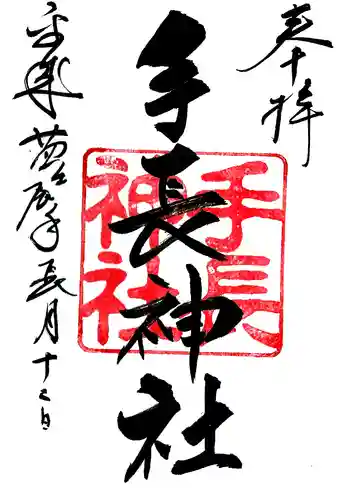 奉拝
手長神社
手長神社
平成 廿六年 長月 十二日